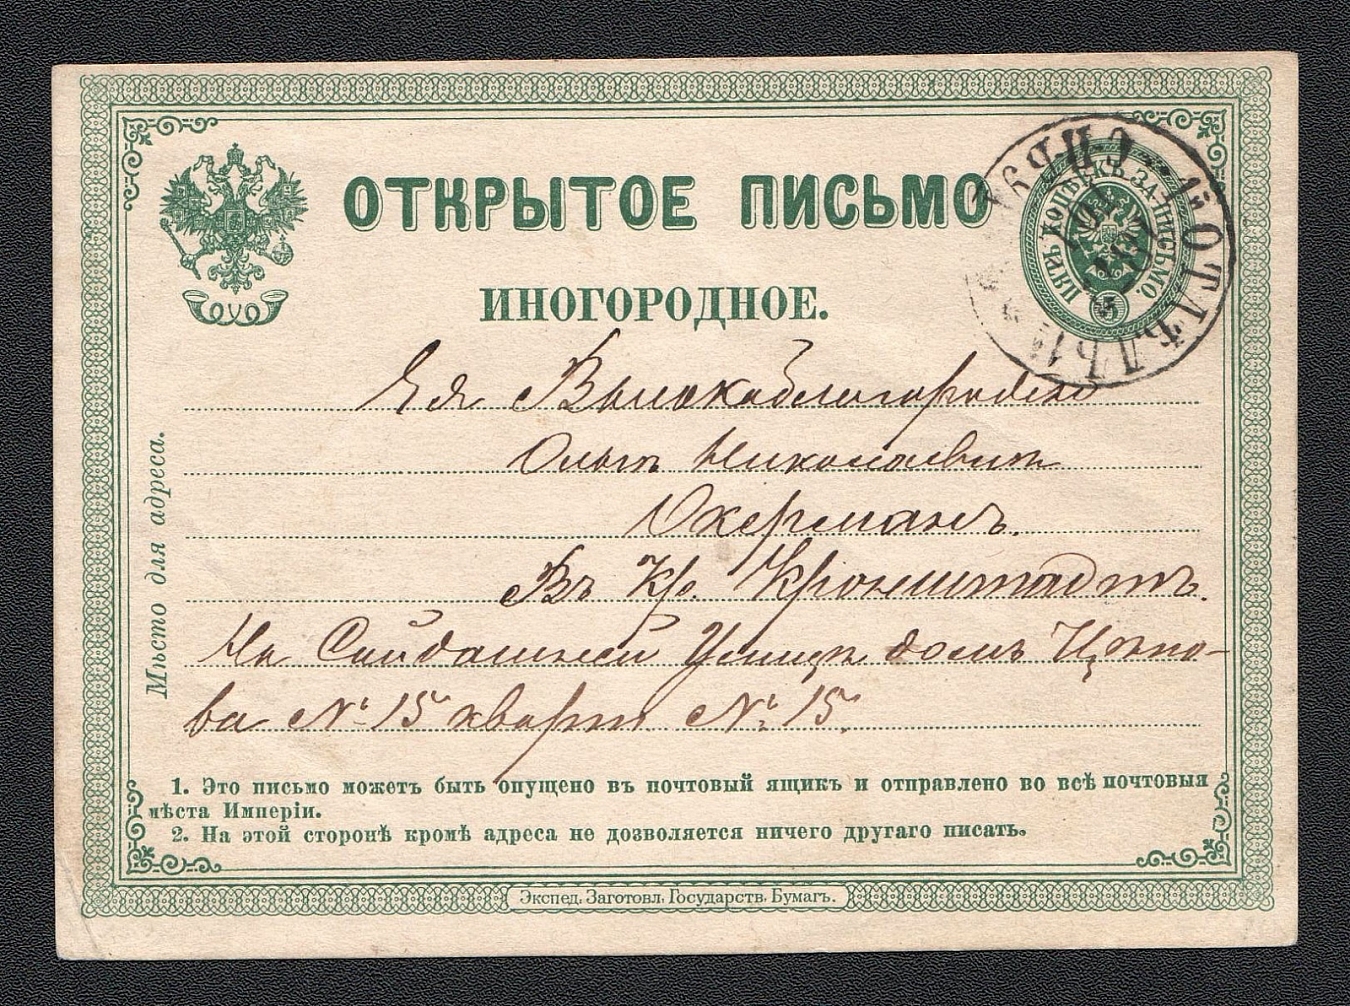 ОТКРЫТОЕ ПИСЬМО
ИНОГОРОДНОЕ.
ПЯТЬ КОПѢЕКЪ ЗА ПИСЬМО.
5
Мѣсто для адреса.
Ея Высокоблагородію
Ольгѣ Николаевнѣ
Окерманъ.
Въ Кр. Кронштадтъ.
На Сайдашной Улицѣ домъ
ва № 15 кварт № 15
1. Это письмо можетъ быть опущено въ почтовый ящикъ и отправлено во всѣ почтовыя
мѣста Имперіи.
2. На этой сторонѣ кромѣ адреса не дозволяется ничего другаго писать.
Экспед. Заготовл. Государств. Бумагъ.